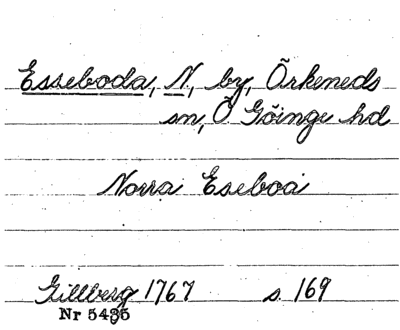 Esseboda, N, by, Örkeneds
sn, Ö Göinge hd
Norra Eseboa
Gillberg 1767 s. 169
Nr 5435